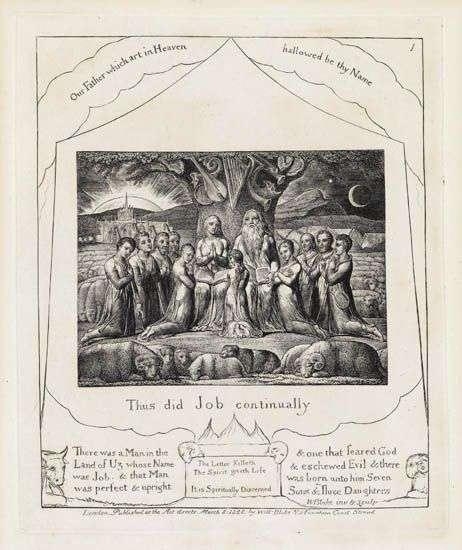 1
Our Father which art in Heaven
hallowed be thy Name
Thus did Job continually
There was a Man in the
Land of Uz whose Name
was Job. & that Man
was perfect & upright
The Letter Killeth
The Spirit giveth Life
It is Spiritually Discerned
& one that feared God
& eschewed Evil & there
was born unto him Seven
Sons & Three Daughters
WBlake inv & sculp
London. Published as the Act directs March 8: 1825. by Will Blake No 3 Fountain Court Strand